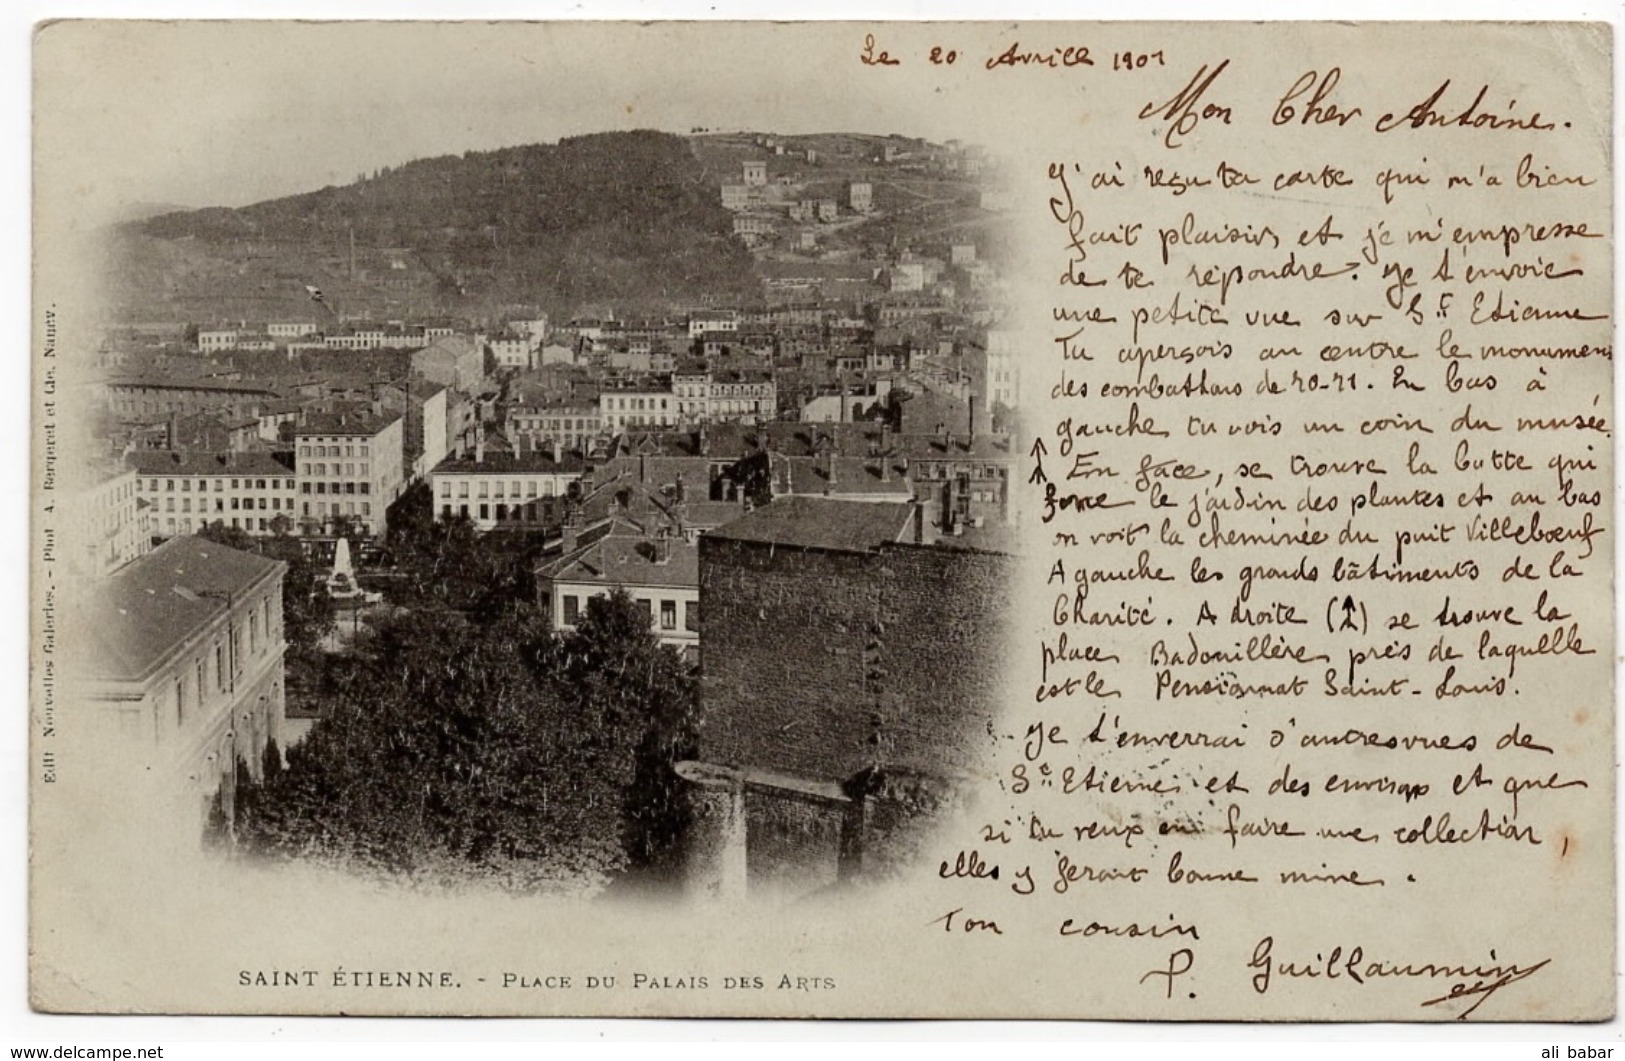 Le 20 Avrill 1901
Mon Cher Antoine.
J'ai reçu ta carte qui m'a bien
fait plaisir, et je m'empresse
de te répondre. Je t'envoie
une petite vue sur St Etienne
Tu aperçois au centre le monument
des combattans de 70-71. En bas à
gauche, tu vois un coin du musée.
En face, se trouve la butte qui
le jardin des plantes et au bas
on voit la cheminée du puit Villebœuf
A gauche les grands bâtiments de la
Charité. A droite (↑) se trouve la
place Badouillère, près de laquelle
est le Pensionnat Saint-Louis.
Je t'enverrai d'autres vues de
St Etienne et des environs et que
si tu veux en faire une collection,
elles y feront bonne mine.
Ton cousin
P. Guillaumin
SAINT ÉTIENNE. - PLACE DU PALAIS DES ARTS
Edit Nouvelles Galeries. - Phot A. Bergeret et Cie. Nancy.
www.delcampe.net
ali babar